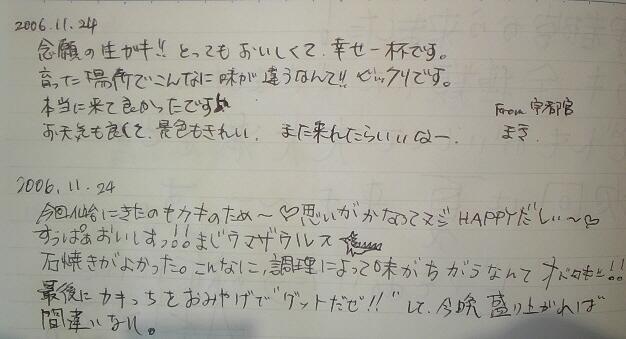 2006.11.24
念願の生ガキ!! とってもおいしくて、幸せ一杯です。
育った場所でこんなに味が違うなんて!! ビックリです。
本当に来て良かったです
from 宇都宮
お天気も良くて、景色もきれい。 また来れたらいいなー。
まき
2006.11.24
今回仙台にきたのもカキのため〜♡思いがかなってマジHAPPYだしぃ〜♡
すっぱぁおいしすっ!!まじウマザウルス
石焼きがよかった。こんなに、調理によって味がちがうなんて
最後にカキっちをおみやげで"ゲットだぜ!!"して、今晩盛り上がれば
間違いなし。